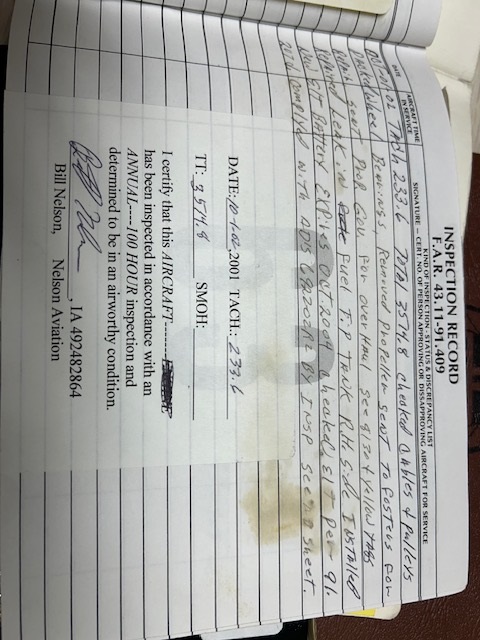 INSPECTION RECORD
F.A.R. 43.11-91.409
KIND OF INSPECTION - STATUS & DISCREPANCY LIST
DATE
AIRCRAFT TIME IN SERVICE
SIGNATURE - CERT. NO. OF PERSON APPROVING OR DISAPPROVING AIRCRAFT FOR SERVICE
01 TACH 233.6 TOTAL 3574.8 checked Cables & pulleys
wheel Bearings, Removed Propeller SENT TO Fosters For
Sent Prop Gov For overHaul See 8130 & yellow TAGS
Leak in fuel Tip TANK RH Side Installed
New ELT BATTERY EXPires OCT checked ELT Per 91.
Complied with ADS By INSP See Sheet.
DATE: 2001 TACH: 233.6
TT: 3574.8 SMOH:
I certify that this AIRCRAFT-------
has been inspected in accordance with an
ANNUAL----100 HOUR inspection and
determined to be in an airworthy condition.
, IA 492482864
Bill Nelson, Nelson Aviation